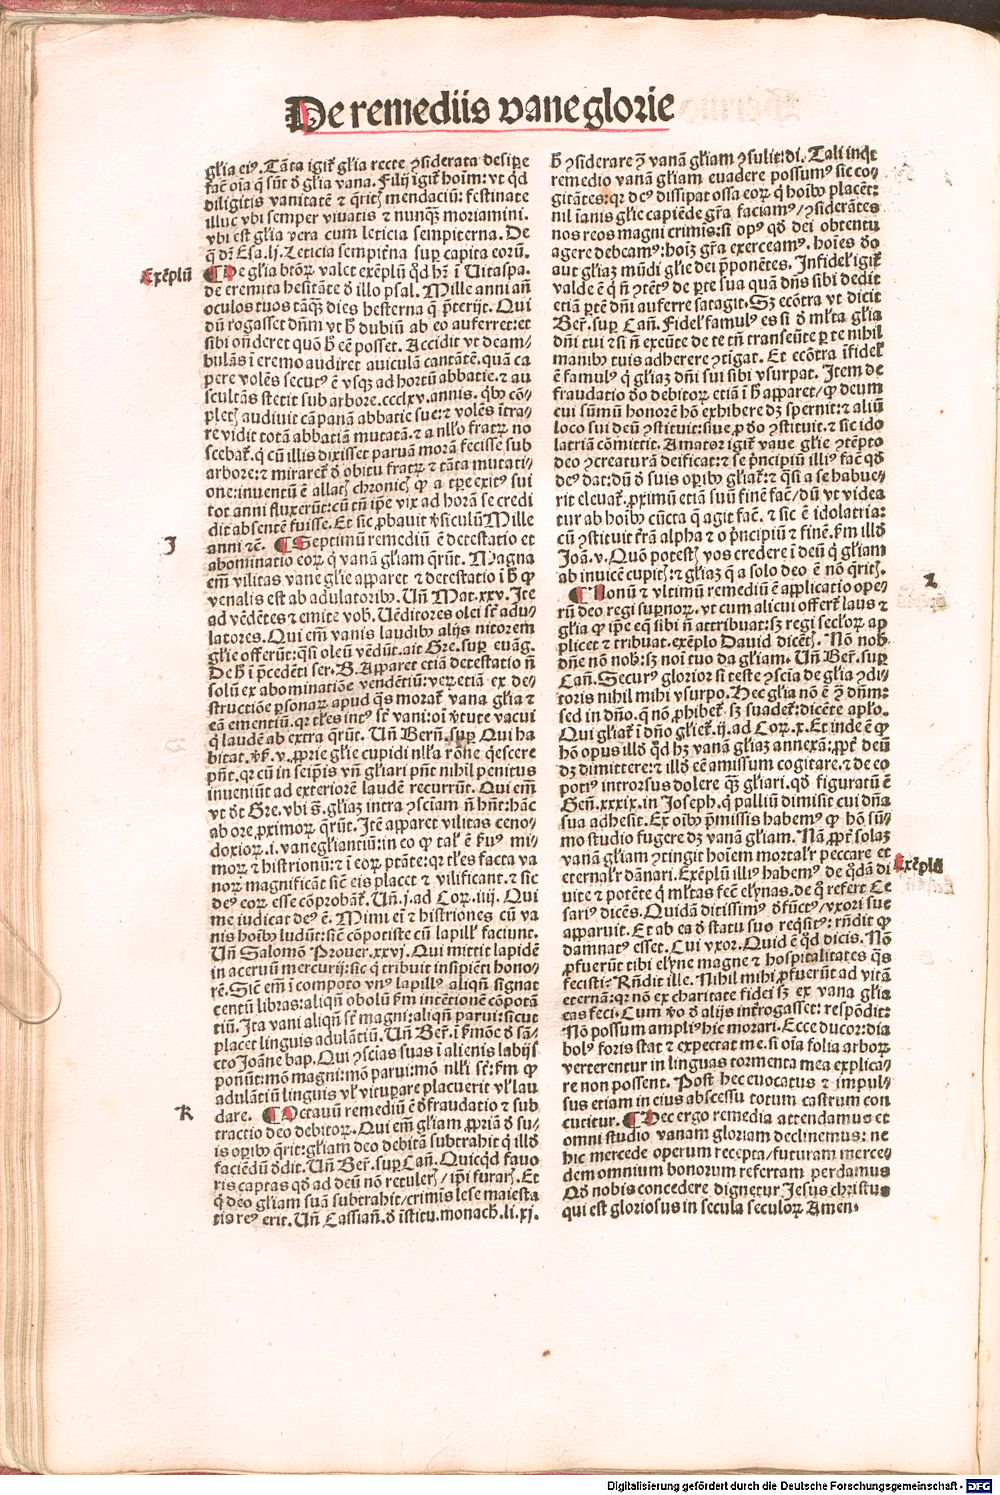 De remediis vane glorie
gl̄ia eiꝰ. Tāta igit̄ gl̄ia recte ꝯsiderata desipe
fac̄ oīa q̄ sūt d̄ gl̄ia vana. Filij igit̄ hoīm: vt qd̄
diligitis vanitatē ⁊ q̄ritꝭ mendaciū: festinate
illuc vbi semper viuatis ⁊ nunqꝫ̄ moriamini.
vbi est gl̄ia vera cum leticia sempiterna. De
q̄ dr̄ Esa. lj. Leticia sempit̄na suꝑ capita eorū.
Exēplū
¶ De gl̄ia btōꝝ valet exēplū qd̄ hr̄ ī Uitaspa.
de eremita hesitāte d̄ illo psal. Mille anni añ
oculos tuos tāqꝫ dies hesterna q̄ p̄terijt. Qui
dū rogasset dn̄m vt h̄ dubiū ab eo auferret: et
sibi on̄deret quō h̄ eē posset. Accidit vt deam⸗
bulās ī eremo audiret auiculā cantātē. quā ca
pere volēs secutꝰ ē vsqꝫ ad hortū abbatie. ⁊ au
scultās stetit sub arbore. ccclxv. annis. qbꝰ cō⸗
pletꝭ audiuit cāpanā abbatie sue: ⁊ volēs ītra⸗
re vidit totā abbatiā mutatā. ⁊ a nllo fratꝝ no
scebat̄. q̄ cū illis dixisset paruā morā fecisse sub
arbore: ⁊ miraret̄ d̄ obitu fratꝝ ⁊ tāta mutati⸗
one: inuentū ē allatꝭ chronicꝭ ꝙ a tp̄e exitꝰ sui
tot anni fluxerūt: cū tn̄ ip̄e vix ad horā se credi
dit absentē fuisse. Et sic ꝓbauit v̄siculū Mille
anni ⁊c̄. ¶ Septimū remediū ē detestatio et
J
abominatio eoꝝ q̄ vanā gl̄iam q̄rūt. Magna
em̄ vilitas vane gl̄ie apparet ⁊ detestatio ī h̄ ꝙ
venalis est ab adulatoribꝰ. Un̄ Mat. xxv. Ite
ad vēdētes ⁊ emite vob̄. Uēditores olei sūt adu⸗
latores. Qui em̄ vanis laudibꝰ alijs nitorem
gl̄ie offerūt: q̄si oleū vēdūt. ait Gre. suꝑ euāg.
De h̄ ī p̄cedēti ser. B. Apparet etiā detestatio n̄
solū ex abominatiōe vendētiū: veretiā ex de⸗
structiōe ꝑsonaꝝ apud q̄s morat̄ vana gl̄ia ⁊
eā ementiū. qꝛ tl̄es intꝰ st̄ vani: oī v̄tute vacui
q̄ laudē ab extra q̄rūt. Un̄ Bern̄. suꝑ Qui ha
bitat. v̄. v. ꝓprie gl̄ie cupidi nlla rōne q̄escere
pn̄t. qꝛ cū in seip̄is vn̄ gl̄iari pn̄t nihil penitus
inueniūt ad exteriorē laudē recurrūt. Qui em̄
vt dt̄ Gre. vbi s̄. gl̄iaꝫ intra ꝯsciam n̄ hn̄t: hāc
ab ore ꝓximoꝝ q̄rūt. Itē apparet vilitas ceno⸗
doxioꝝ. i. vanegliantiū: in eo ꝙ tal̄ ē ẜuꝰ mi⸗
moꝝ ⁊ histrionū: ⁊ ī eoꝝ ptāte: qꝛ tl̄es facta va
noꝝ magnificāt sic̄ eis placet ⁊ vilificant. ⁊ sic
deꝰ eoꝝ esse cōprobāt̄. Un̄. j. ad Coꝝ. iiij. Qui
me iudicat deꝰ ē. Mimi em̄ ⁊ histriones cū va
nis hoībꝰ ludūt: sic̄ cōpotiste cū lapillꝭ faciunt.
Un̄ Salomō Prouer. xxvj. Qui mittit lapidē
in aceruū mercurij: sic q̄ tribuit insipiēti hono⸗
rē. Sic̄ em̄ ī compoto vnꝰ lapillꝰ aliqn̄ signat
centū libras: aliqn̄ obolū ẜm intētionē cōpotā
tiū. Ita vani aliqn̄ st̄ magni: aliqn̄ parui: sicut
placet linguis adulātiū. Un̄ Ber̄. ī ẜmōe d̄ sā⸗
cto Joāne bap. Qui ꝯscias suas ī alienis labijs
ponūt: mō magni: mō parui: mō nlli st̄: ẜm ꝙ
adulātiū linguis vl̄ vituꝑare placuerit vl̄ lau
dare. ¶ Octauū remediū ē d̄fraudatio ⁊ sub
K
tractio deo debitoꝝ. Qui em̄ gl̄iam ꝓpriā d̄ su⸗
is oꝑibꝰ q̄rit: gl̄iam deo debitā subtrahit q̄ illd̄
faciēdū dedit. Un̄ Ber̄. suꝑ Can̄. Quicqd̄ fauo
ris captas qd̄ ad deū nō retulerꝭ / ip̄i furarꝭ. Et
q̄ deo gl̄iam suā subtrahit / crimīs lese maiesta
tis reꝰ erit. Un̄ Cassian̄. d̄ īstitu. monach̄. li. xj.
h̄ ꝯsiderare ꝯ̄ vanā gl̄iam ꝯsulit: di. Tali inq̄t
remedio vanā gl̄iam euadere possumꝰ sic co⸗
gitātes: qꝛ deꝰ dissipat ossa eoꝝ q̄ hoībꝰ placēt:
nil īanis gl̄ie capiēde gr̄a faciamꝰ / ꝯsiderātes
nos reos magni crimīs: si opꝰ qd̄ dei obtentu
agere debeamꝰ: hoīꝫ gr̄a exerceamꝰ. hoīes d̄o
aut gl̄iaꝫ mūdi gl̄ie dei p̄ponētes. Infidel̄ igit̄
valde ē q̄ n̄ ꝯtētꝰ de ꝑte sua quā dn̄s sibi dedit
etiā ꝑtē dn̄i auferre satagit. Sꝫ ecōtra vt dicit
Ber̄. suꝑ Can̄. Fidel̄ famulꝰ es si d̄ ml̄ta gl̄ia
dn̄i tui ⁊ si n̄ exeūte de te tn̄ transeūte ꝑ te nihil
manibꝰ tuis adherere ꝯtigat. Et ecōtra īfidel̄
ē famulꝰ q̄ gl̄iaꝫ dn̄i sui sibi vsurpat. Item de
fraudatio d̄o debitoꝝ etiā ī h̄ apparet / ꝙ deum
cui sūmū honorē hō exhibere dꝫ spernit: ⁊ aliū
loco sui deū ꝯstituit: siue ꝓ d̄o ꝯstituit. ⁊ sic ido
latriā cōmittit. Amator igit̄ vane gl̄ie ꝯtēpto
deo ꝯcreaturā deificat: ⁊ se p̄ncipiū illiꝰ fac̄ qd̄
deꝰ dat: dū d̄ suis oꝑibꝰ gl̄iat̄: ⁊ q̄si a se habue⸗
rit eleuat̄. ꝓximū etiā suū finē fac̄ / dū vt videa
tur ab hoībꝰ cūcta q̄ agit fac̄. ⁊ sic ē idolatria:
cū ꝯstituit fr̄a alpha ⁊ o p̄ncipiū ⁊ finē. ẜm illd̄
Joā. v. Quō potestꝭ vos credere ī deū q̄ gl̄iam
ab inuicē cupitꝭ: ⁊ gl̄iaꝫ q̄ a solo deo ē nō q̄ritꝭ.
¶ Nonū ⁊ vltimū remediū ē applicatio ope⸗
L
rū deo regi suꝑnoꝝ. vt cum alicui offert̄ laus ⁊
gl̄ia ꝙ ip̄e eq̄ sibi n̄ attribuat: sꝫ regi sec̄loꝝ ap
plicet ⁊ tribuat. exēplo Dauid dicētꝭ. Nō nob̄
dn̄e nō nob̄: sꝫ noī tuo da gl̄iam. Un̄ Ber̄. suꝑ
Can̄. Securꝰ glorior si teste ꝯscia de gl̄ia ꝯdi⸗
toris nihil mihi vsurpo. Hec gl̄ia nō ē ꝯ̄ dn̄m:
sed in dn̄o. q̄ nō ꝓhibet̄ sꝫ suadet̄: dicēte aplo.
Qui gl̄iat̄ ī dn̄o gl̄iet̄. ij. ad Coꝝ. x. Et inde ē ꝙ
hō opus illd̄ qd̄ hꝫ vanā gl̄iaꝫ annexā: ꝓpt̄ deū
dꝫ dimittere: ⁊ illd̄ eē amissum cogitare. ⁊ de eo
potiꝰ introrsus dolere qꝫ̄ gl̄iari. qd̄ figuratū ē
Gen̄. xxxix. in Joseph. q̄ palliū dimisit cui dn̄a
sua adhesit. Ex oībꝰ p̄missis habemꝰ ꝙ hō sū⸗
mo studio fugere dꝫ vanā gl̄iam. Nā ꝓpt̄ solaꝫ
vanā gl̄iam ꝯtingit hoīem mortal̄r peccare et
Exēplū
eternal̄r dānari. Exēplū illiꝰ habemꝰ de q̄dā di
uite ⁊ potēte q̄ ml̄tas fec̄ elynas. de q̄ refert Ce
sariꝰ dicēs. Quidā ditissimꝰ d̄fūctꝰ / vxori sue
apparuit. Et ab ea d̄ statu suo reqsitꝰ: rn̄dit ꝙ
damnatꝰ esset. Cui vxor. Quid ē qd̄ dicis. Nō
ꝓfuerūt tibi elyne magne ⁊ hospitalitates q̄s
fecisti? Rn̄dit ille. Nihil mihi ꝓfuerūt ad vitā
eternā: qꝛ nō ex charitate fidei sꝫ ex vana gl̄ia
eas feci. Cum d̄o d̄ alijs int̄rogasset: respōdit:
Nō possum ampliꝰ hic morari. Ecce ducor: dia
bolꝰ foris stat ⁊ expectat me. si oīa folia arboꝝ
verterentur in linguas tormenta mea explica⸗
re non possent. Post hec euocatus ⁊ impul⸗
sus etiam in eius abscessu totum castrum con
cutitur. ¶ Hec ergo remedia attendamus et
omni studio vanam gloriam declinemus: ne
hic mercede operum recepta / futuram merce⸗
dem omnium bonorum refertam perdamus
Qd̄ nobis concedere dignetur Jesus christus
qui est gloriosus in secula seculoꝝ Amen.
Digitalisierung gefördert durch die Deutsche Forschungsgemeinschaft - DFG